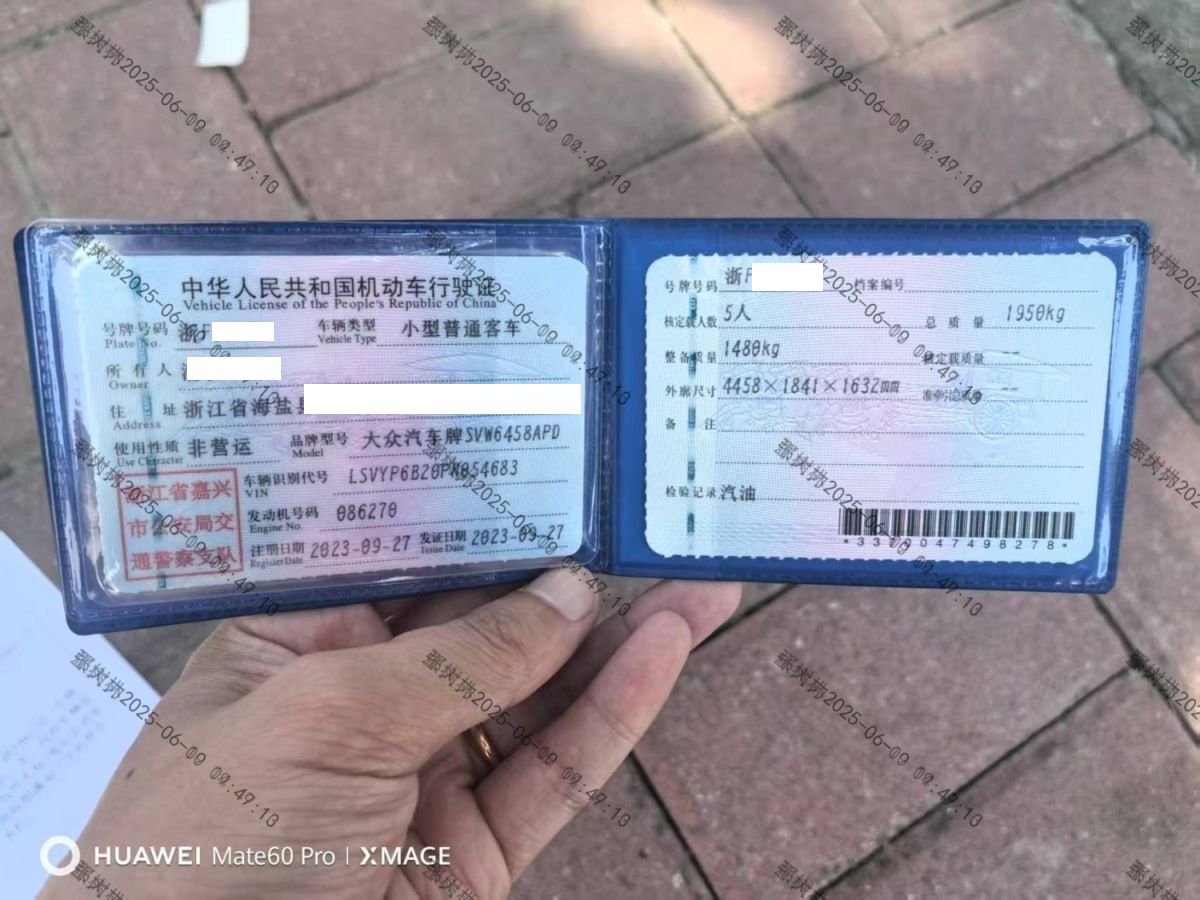 中华人民共和国机动车行驶证
Vehicle License of the People's Republic of China
号牌号码 浙F 车辆类型 小型普通客车
Plate No. Vehicle Type
所有人
Owner
住址 浙江省海盐县
Address
使用性质 非营运 品牌型号 大众汽车牌SVW6458APD
Use Character Model
车辆识别代号 LSVYP6B20PN054683
VIN
发动机号码 086270
Engine No.
注册日期 2023-09-27 发证日期 2023-09-27
Register Date Issue Date
浙江省嘉兴
市公安局交
通警察支队
号牌号码 浙F 档案编号
核定载人数 5人 总质量 1950kg
整备质量 1480kg 核定载质量 --
外廓尺寸 4458×1841×1632mm 准牵引总质量 --
备注
检验记录 汽油
HUAWEI Mate60 Pro | XMAGE
2025-06-09 09:47:10